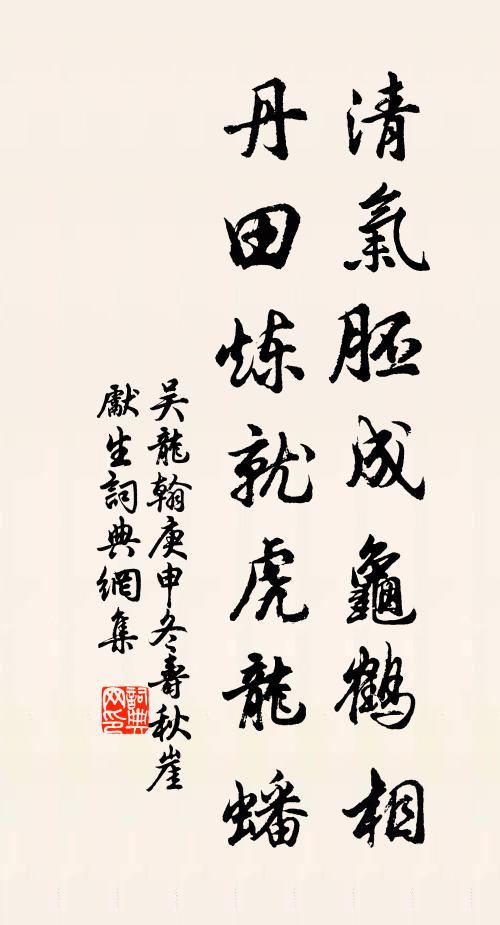 清氣胚成龜鶴相
丹田炼就虎龍蟠
吴龍翰庚申冬壽秋崖
獻生詞典網集
詞典网印